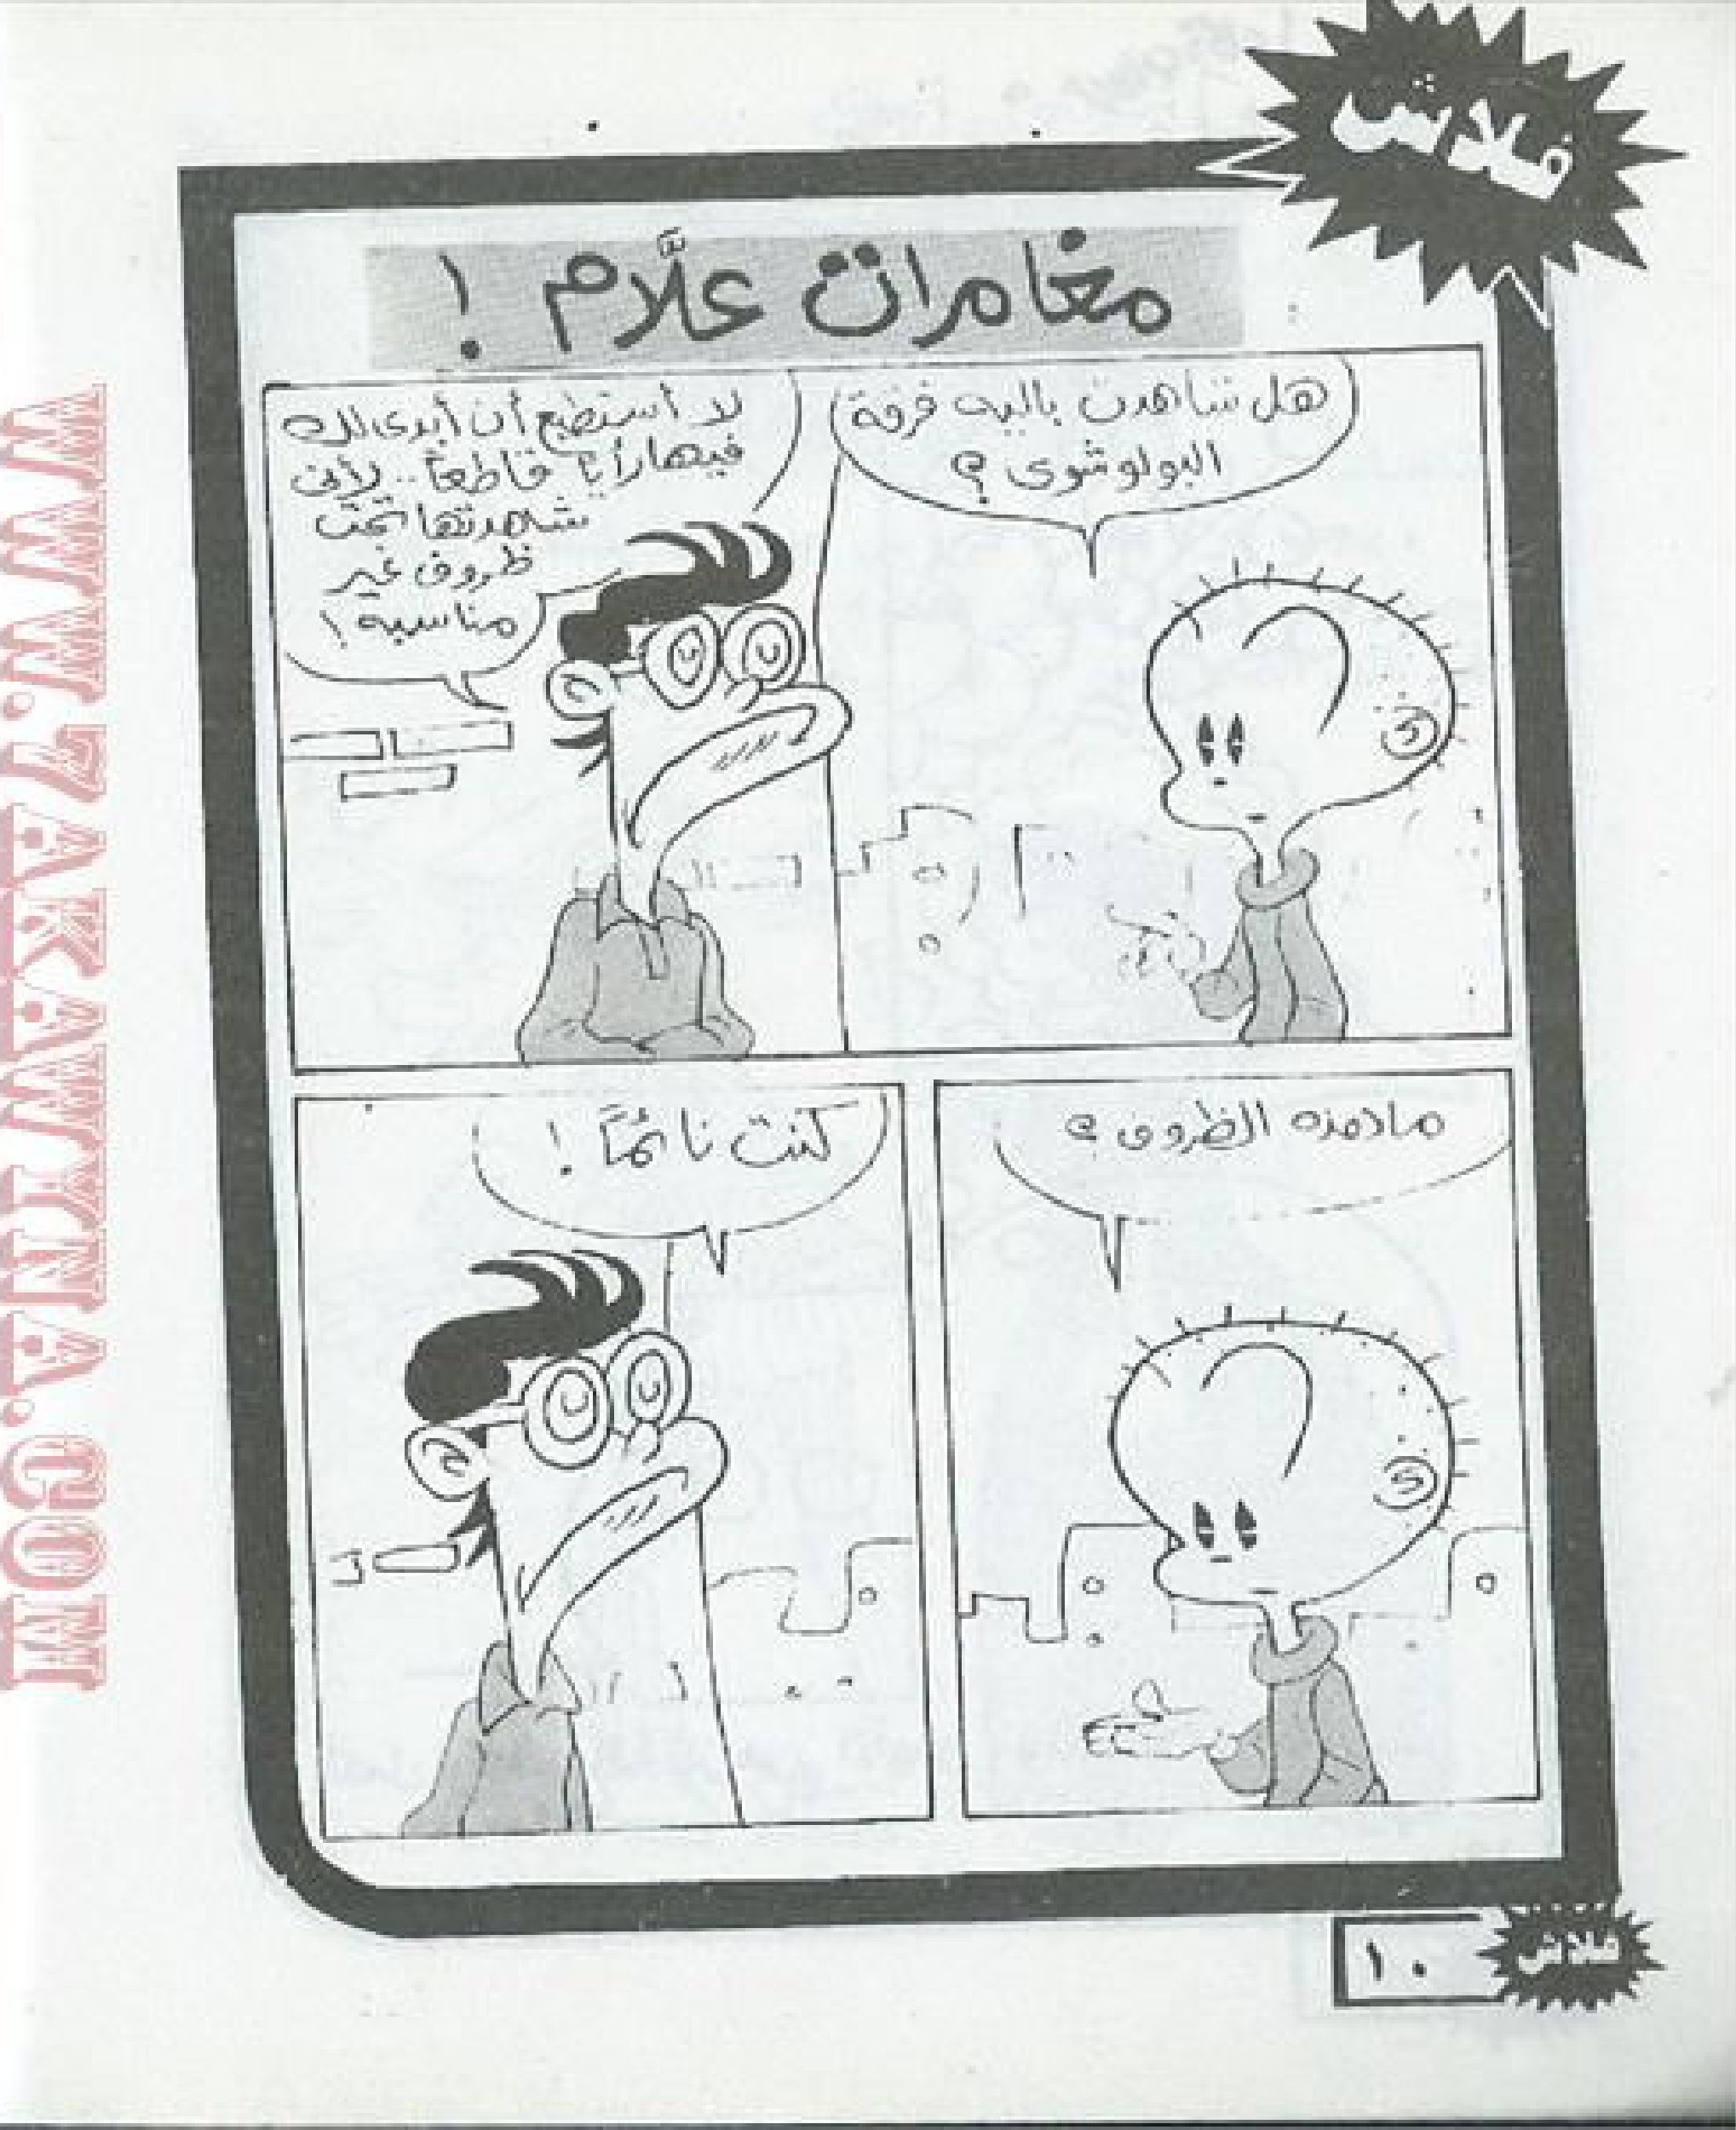 فلاش
مغامرات علَّام !
هل شاهدت باليه فرقة
البولوشوى ؟
لا أستطيع أن أبدى لك
فيها رأيًا قاطعًا .. لأننى
شهدتها تحت
ظروف غير
مناسبه !
ماهذه الظروف ؟
كنت نائمًا !
فلاش
١٠
WWW.7AKAWITNA.COM